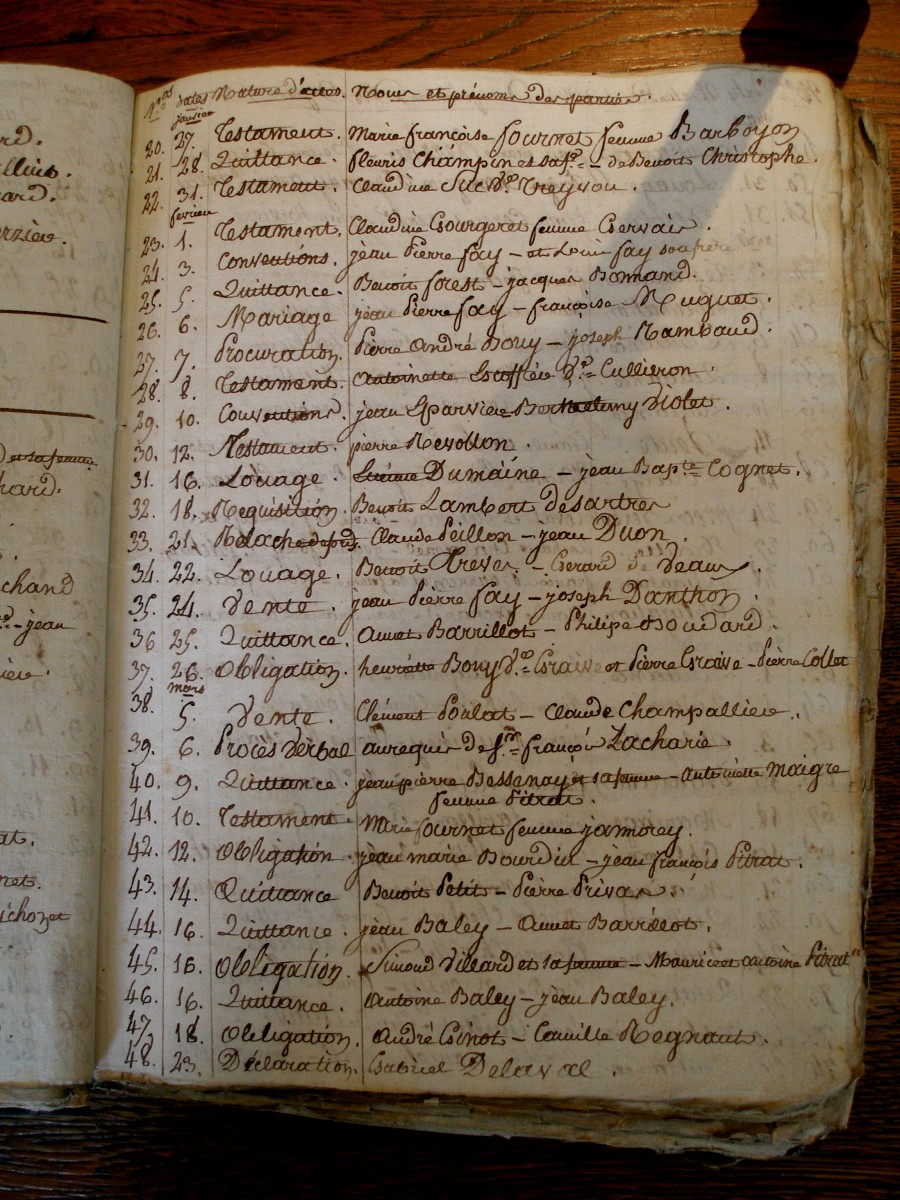 rd.
llius.
ard.
chard.
chand
jean
at.
net.
N.os dates Nature d'actes. Noms et prénoms des parties.
janvier
20. 27. Testament. Marie françoise fournet femme Barboyon
21. 28. Quittance. fleuris Champin et sa fe. - de Benoit Christophe.
22. 31. Testament. Claudine Suc Ve. Treyvou.
fevrier
23. 1. Testament. Claudine Gourgeret femme Gervais.
24. 3. Conventions. jean Pierre fay - et Louis fay son frere
25. 5. Quittance. Benoit forest - jacques Bonnand.
26. 6. Mariage jean Pierre fay - françoise Muguet.
27. 7. Procuration. Pierre André Bouy - joseph Rambaud.
28. 8. Testament. Antoinette Ve. Cullieron.
29. 10. Conventions. jean Barthelemy Violet.
30. 12. Testament. pierre Revollon.
31. 16. Louage. Dumaine - jean Bapte. Cognet.
32. 18. Requisition. Benoit Lambert desartres
33. 21. Claude Peillon - jean Duon.
34. 22. Louage. Benoit Trèves - Gerard de Veaux.
35. 24. Vente. jean Pierre fay - joseph Danthon.
36 25. Quittance. Annet Barrillot - Philipe Boudard.
37. 26. Obligation. henriette Bouy Ve. Graise et Pierre Graise - Pierre Collet
mars
38. 5. Vente. Clément Poulat - Claude Champallier.
39. 6. Procès Verbal au requis de Sr. françois Zacharie.
40. 9. Quittance. jean pierre Bessenay et sa femme - Antoinette Maigre
femme Pitrat.
41. 10. Testament. Marie fournet femme jamorey.
42. 12. Obligation. jean marie Bourdin - jean françois Pitrat.
43. 14. Quittance Benoit Petit - Pierre Privas.
44. 16. Quittance. jean Baley - Annet Barrillot.
45. 16. Obligation. Simond Villard et sa femme - Maurice et antoine Pitrat
46. 16. Quittance. Antoine Baley - jean Baley.
47. 18. Obligation. André Ginot - Camille Regnaut.
48. 23. Déclaration. Gabriel Delaval.